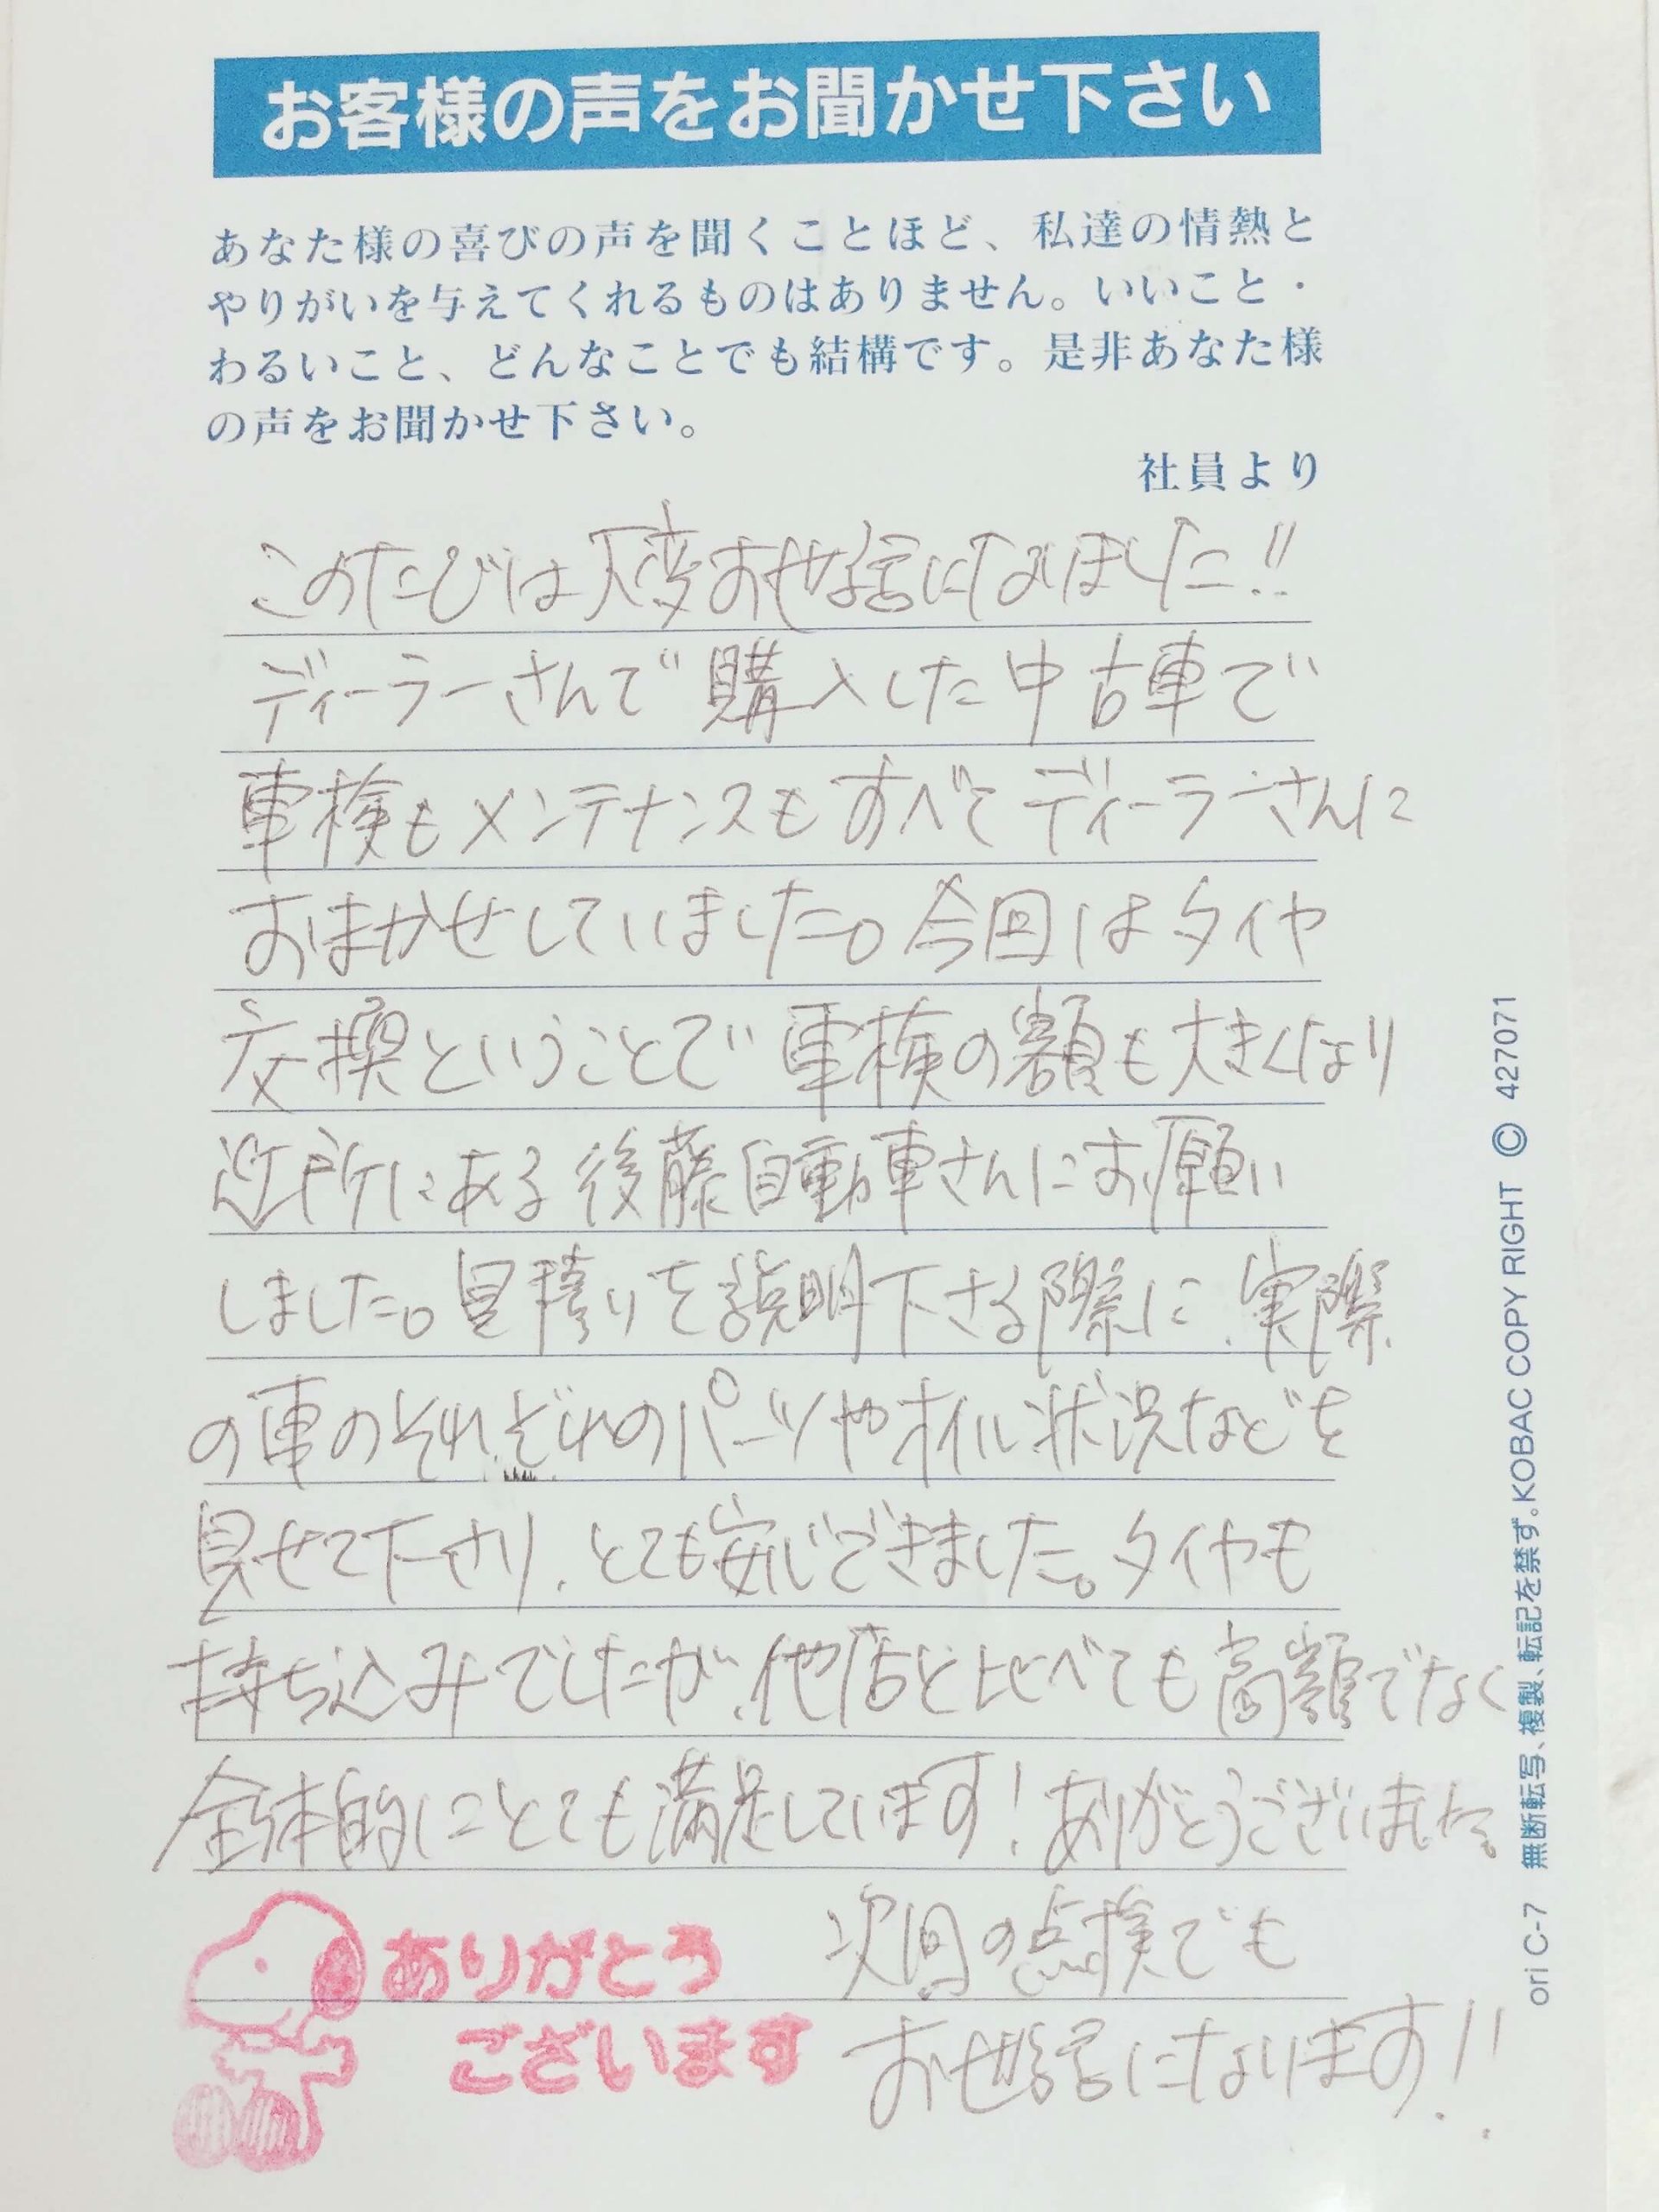 お客様の声をお聞かせ下さい
あなた様の喜びの声を聞くことほど、私達の情熱と
やりがいを与えてくれるものはありません。いいこと・
わるいこと、どんなことでも結構です。是非あなた様
の声をお聞かせ下さい。
社員より
このたびは大変お世話になりました!!
ディーラーさんで購入した中古車で
車検もメンテナンスもすべてディーラーさんに
おまかせしていました。今回はタイヤ
交換ということで車検の額も大きくなり
近所にある後藤自動車さんにお願い
しました。見積りを説明下さる際に、実際
の車のそれぞれのパーツやオイル状況などを
見せて下さり、とても安心できました。タイヤも
持ち込みでしたが、他店と比べても高額でなく
全体的にとても満足しています!ありがとうございました。
次回の点検でも
お世話になります!!
ありがとう
ございます
ori C-7 無断転写、複製、転記を禁ず。KOBAC COPY RIGHT © 427071